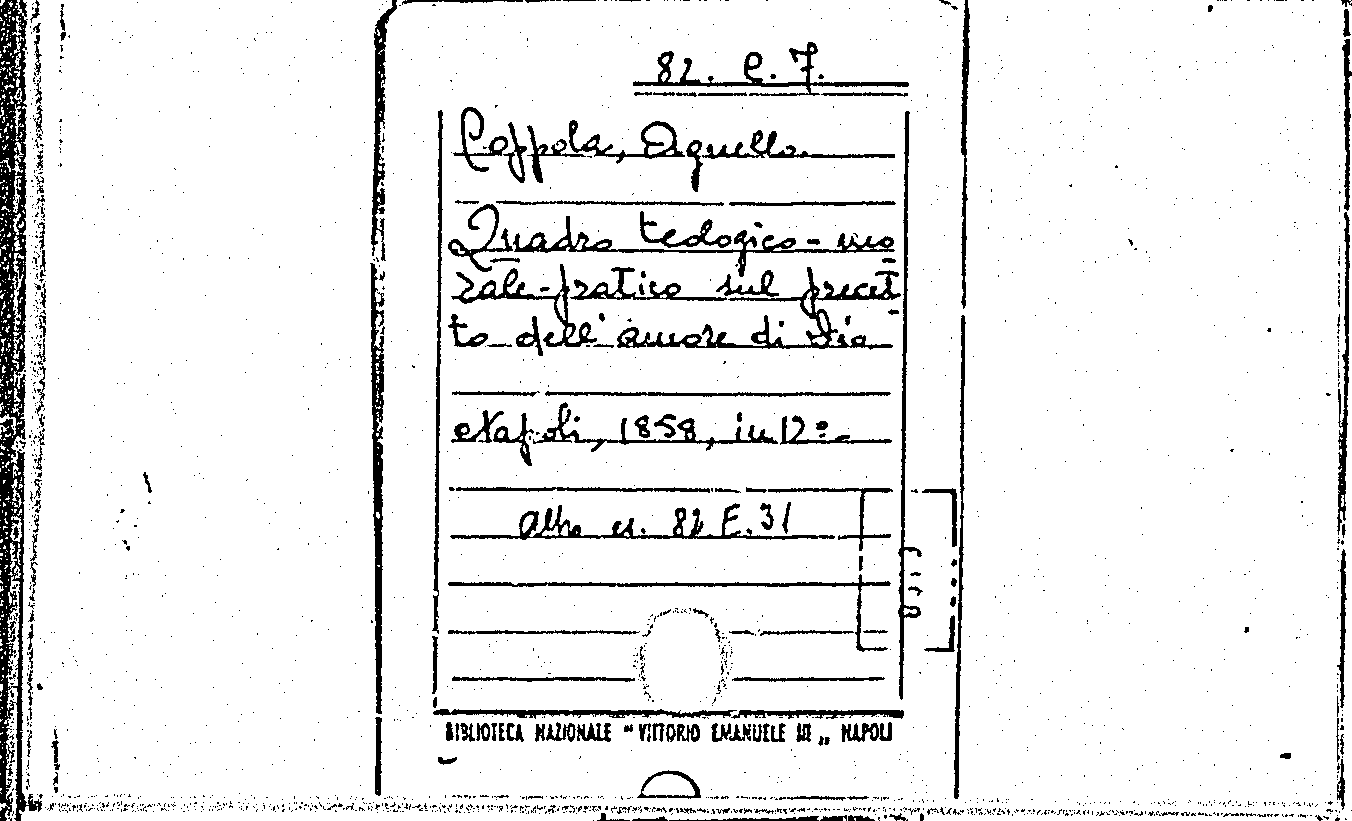 82. C. 7.
Coppola, Agnello.
Quadro teologico-mo
rale-pratico sul precet
to dell'amore di Dio
Napoli, 1858, in 12º.-
altro es. 82.E.31
BIBLIOTECA NAZIONALE "VITTORIO EMANUELE III„ NAPOLI